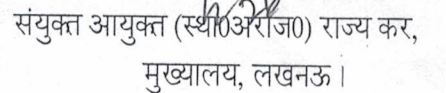 संयुक्त आयुक्त (स्था0अराज0) राज्य कर,
मुख्यालय, लखनऊ।